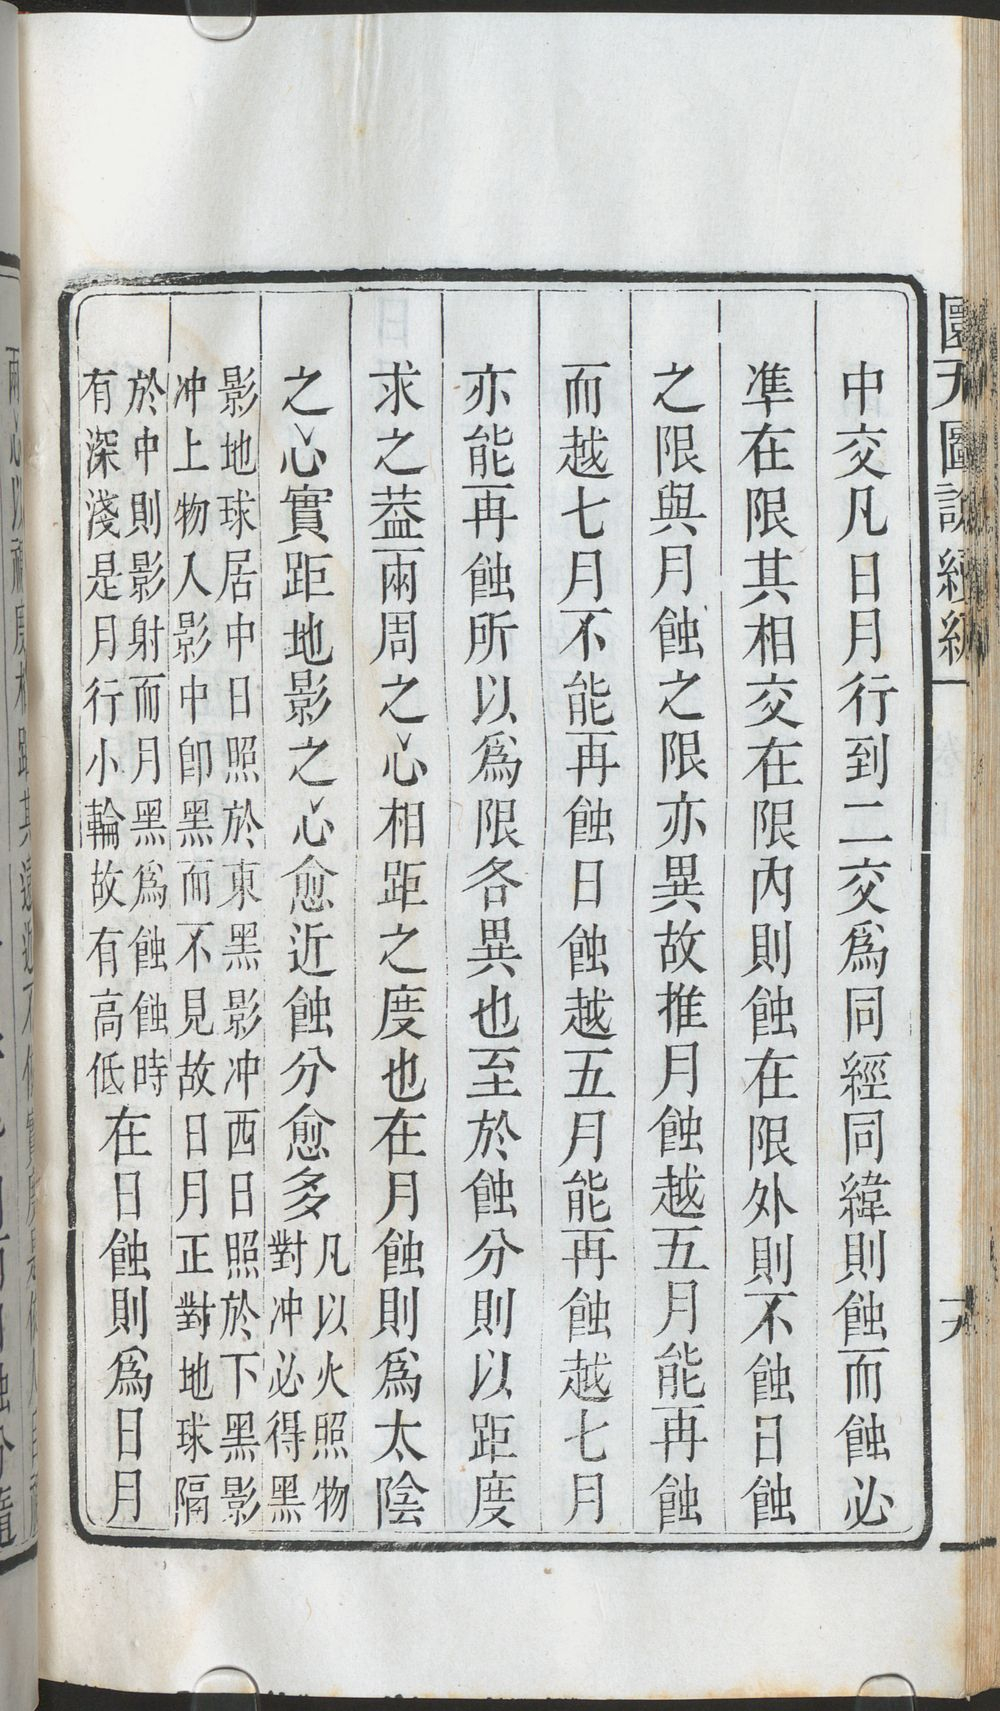 圜天圖說續編一
中交凡日月行到二交爲同經同緯則蝕而蝕必
準在限其相交在限內則蝕在限外則不蝕日蝕
之限與月蝕之限亦異故推月蝕越五月能再蝕
而越七月不能再蝕日蝕越五月能再蝕越七月
亦能再蝕所以爲限各異也至於蝕分則以距度
求之葢兩周之心相距之度也在月蝕則爲太陰
之心實距地影之心愈近蝕分愈多
凡以火照物
對冲必得黑
影地球居中日照於東黑影冲西日照於下黑影
冲上物入影中卽黑而不見故日月正對地球隔
於中則影射而月黑爲蝕蝕時
有深淺是月行小輪故有高低
在日蝕則爲日月